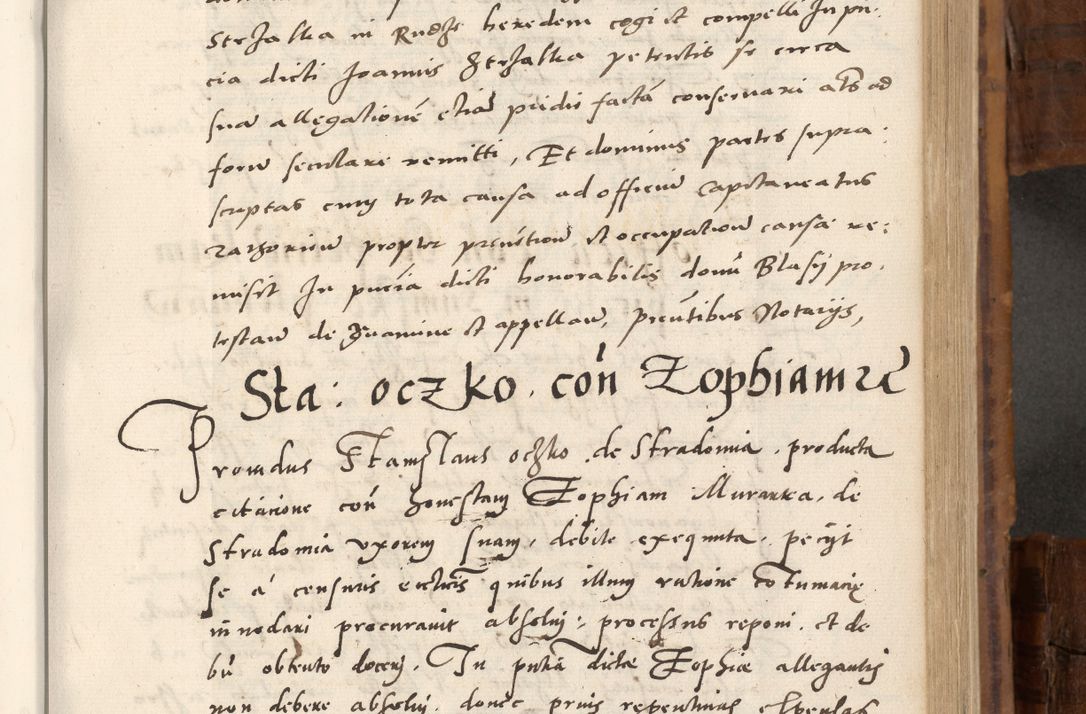 Strzalka in Rudze heredem cogi et compelli In pn:
cia dicti Joannis Strzalka petentis se circa
suã allegationẽ etiã pridiẽ factã conseruari atq3 ad
forũ seculare remitti, Et dominus partes supra:
scriptas cum tota causa ad officiũ Capitaneatus
Zathoriens̃ propter preuẽtionẽ et occupationẽ causæ re:
misit In pñcia dicti honorabilis domñ Blasij pro:
testañ de grauamine et appellañ, presẽtibus Notarijs,
Sta: oczko. coñ Zophiam zc̃
Prouidus Stanislaus oczko de Stradomia. producta
citacione coñ honestam Zophiam Murarka, de
Stradomia vxorem suam, debite exequuta, petijt
se á censuris eccticis quibus illum ratione cõtumacię
innodari procurauit absolui, processus reponi. et de
bũ obtento doceri. In pñtia dictæ Zophiæ allegantis
non debere absolui. donec prius repetentias expensas